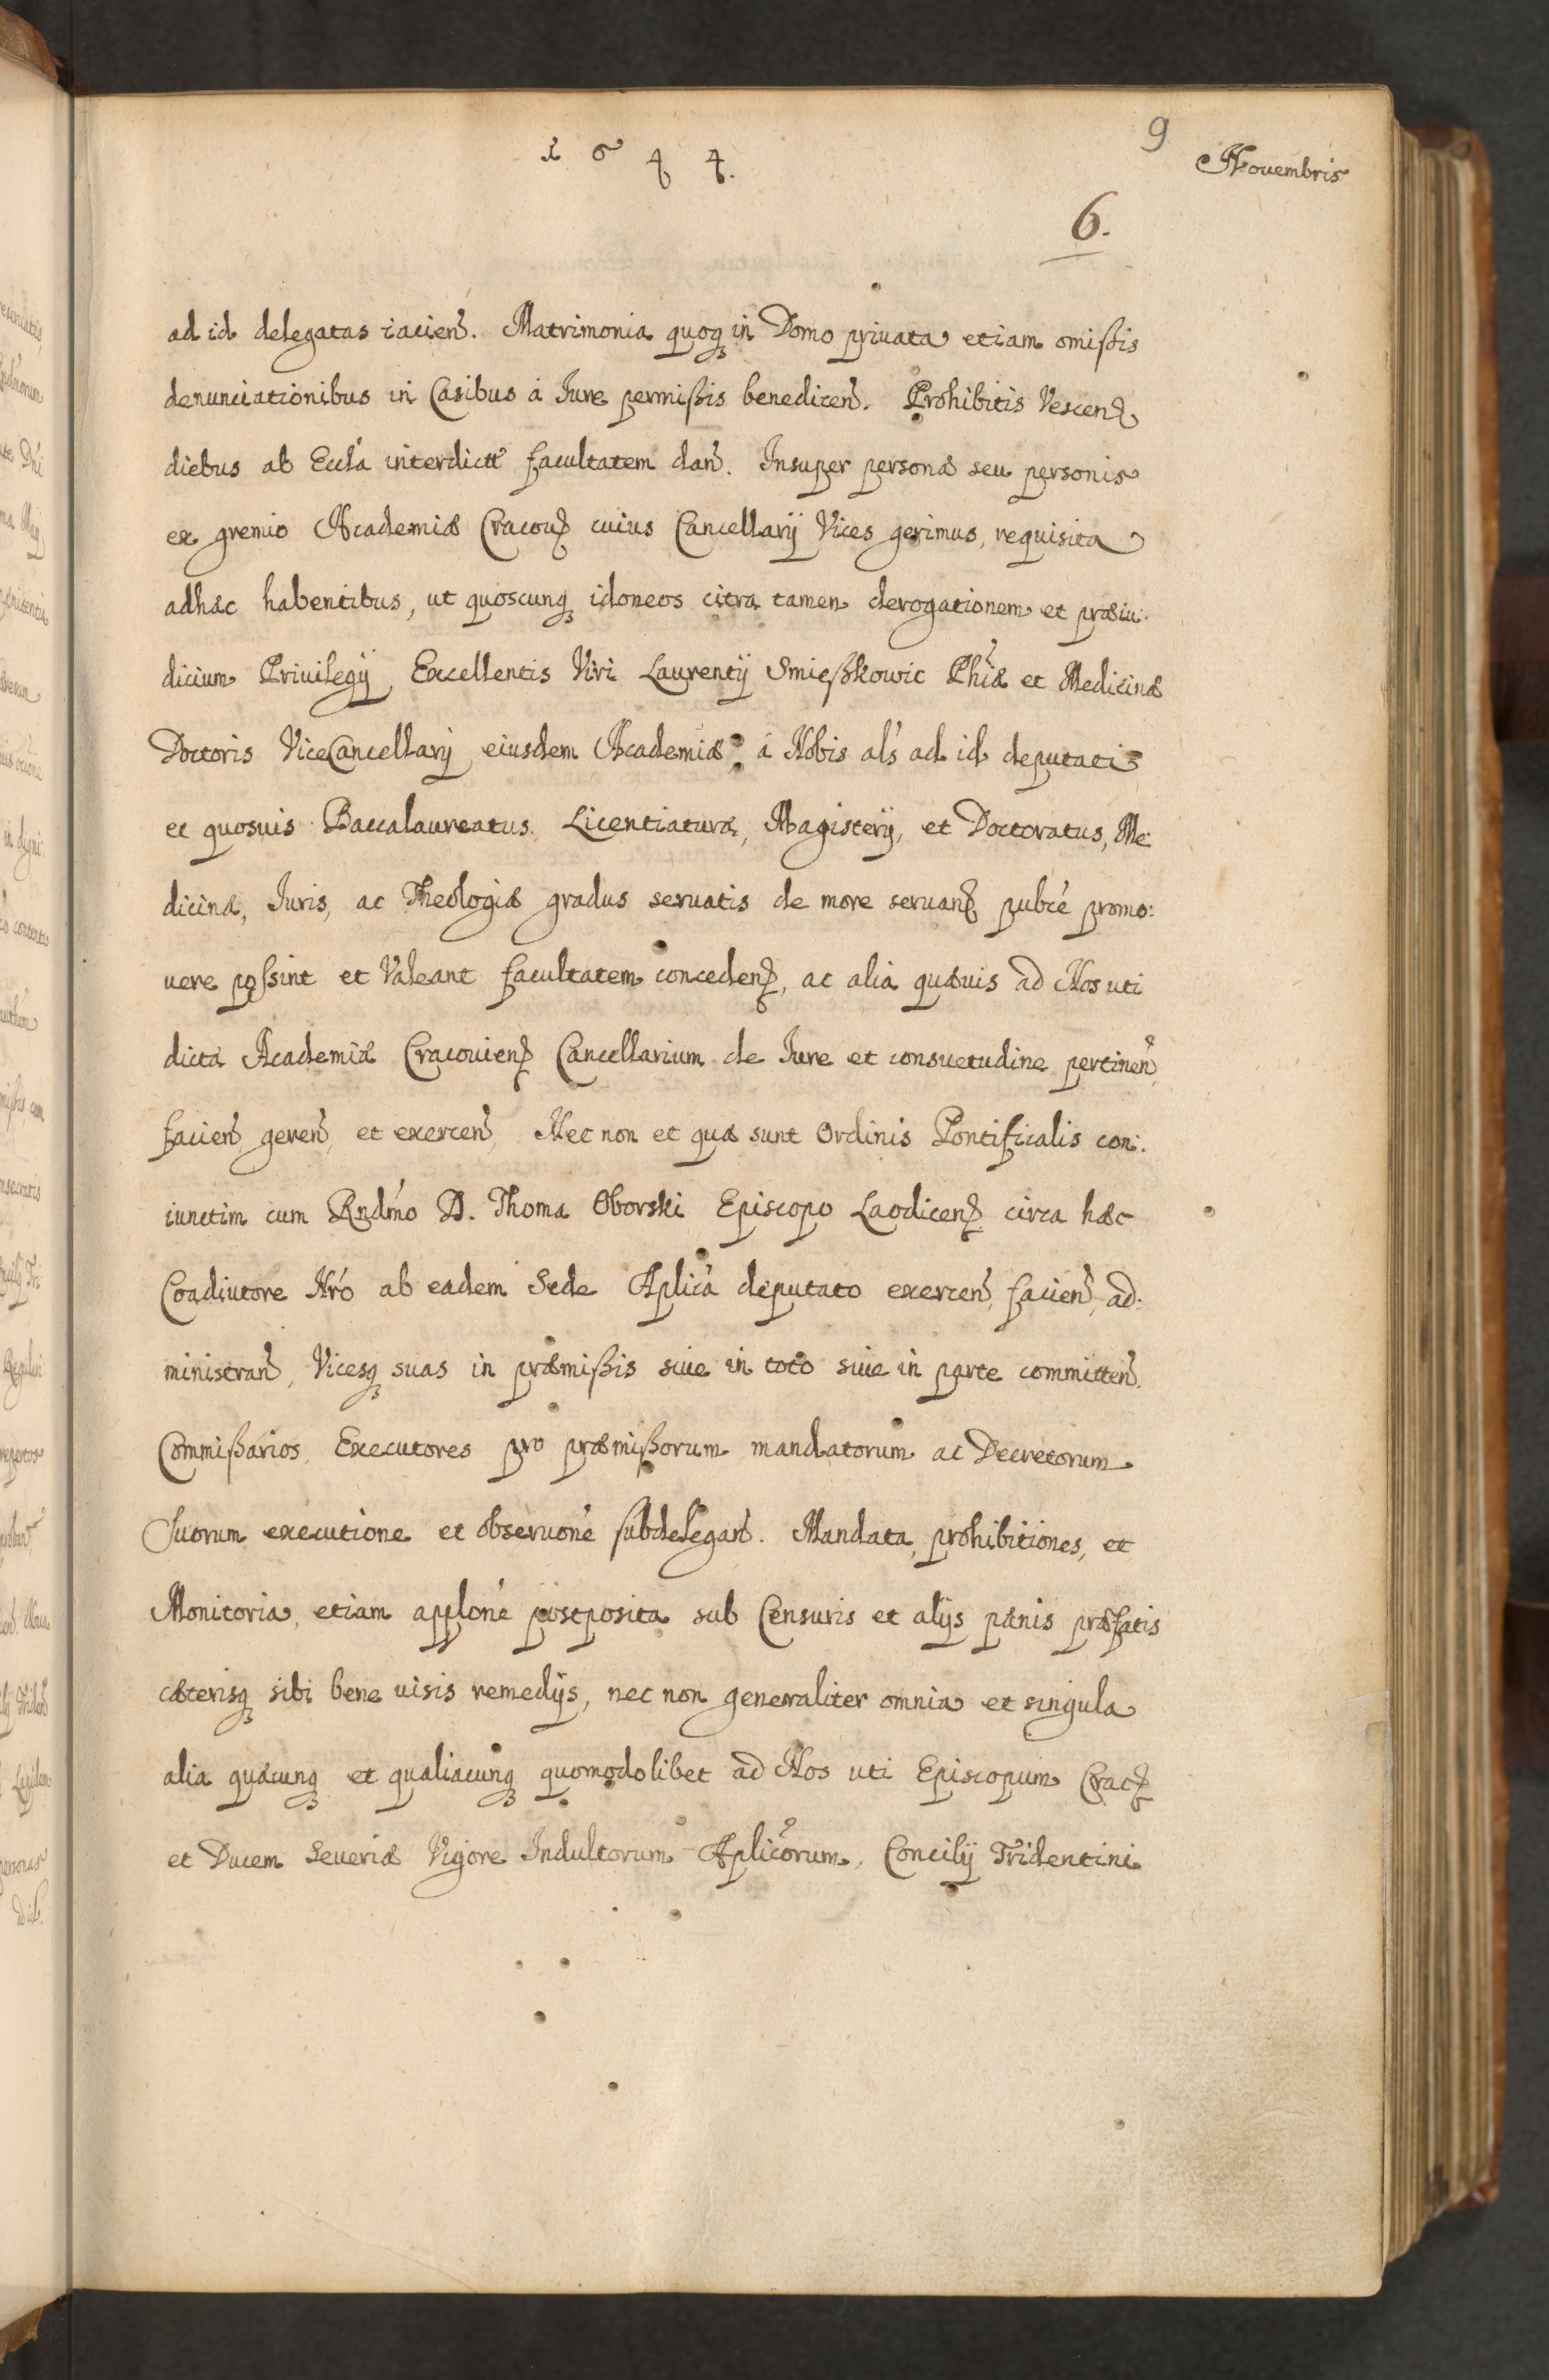 1644.
9
Nouembris
6.
ad id delegatas facień. Matrimonia quoqȝ in Domo priuata etiam omißis
denunciationibus in Casibus á Iure permißis benediceń. Prohibitis Vescenȝ
diebus ab Eccła interdictt facultatem dań. Insuper personæ seu personis
ex gremio Academiæ Cracouȝ cuius Cancellarÿ Vices gerimus, requisita
adhæc habentibus, ut quoscunqȝ idoneos citra tamen derogationem et præiu:
dicium Priuilegÿ Excellentis Viri Laurentÿ Smießkowic Phiæ et Medicinæ
Doctoris ViceCancellarÿ eiusdem Academiæ, á Nobis als ad id deputati
et quosuis Baccalaureatus, Licentiaturæ, Magisterÿ, et Doctoratus, Me:
dicinæ, Iuris, ac Theologiæ gradus seruatis de more seruanȝ pubcé promo:
uere poßint et Valeant facultatem concedenȝ, ac alia quæuis ad Nos uti
dictæ Academiæ Cracouienȝ Cancellarium de Iure et consuetudine pertineń,
facień, gereń, et exerceń, Nec non et quæ sunt Ordinis Pontificalis con:
iunctim cum Rndḿo D. Thoma Oborski Episcopo Laodicenȝ circa hæc
Coadiutore Nŕo ab eadem Sede Aplicá deputato exerceń, facień, ad:
ministrań, Vicesqȝ suas in præmißis siue in toto siue in parte committeń.
Commißarios, Executores pro præmißorum mandatorum ac Decretorum
Suorum executione et obseruońe subdelegań. Mandata, prohibitiones, et
Monitoria, etiam appłońe postposita sub Censuris et alÿs pænis præfatis
cæterisqȝ sibi bene uisis remedÿs, nec non generaliter omnia et singula
alia quæcunqȝ et qualiacunqȝ quomodolibet ad Nos uti Episcopum Cracȝ
et Ducem Seueriæ Vigore Indultorum Aplicorum, Concilÿ Tridentini